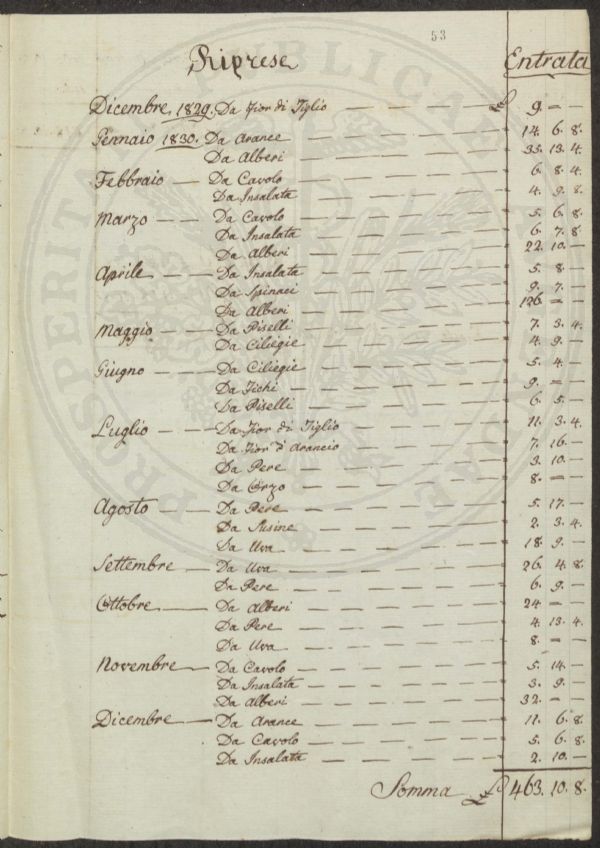 53
Riprese Entrata
Dicembre, 1829. Da Fior di Tiglio — £ 9. = —
Gennaio 1830. Da Arance — 14. 6. 8.
Da Alberi — 33. 13. 4.
Febbraio — Da Cavolo — 6. 8. 4.
Da Insalata — 4. 9. 8.
Marzo — Da Cavolo — 5. 6. 8.
Da Insalata — 6. 7. 8.
Da Alberi — 22. 10. —
Aprile — Da Insalata — 5. 8. —
Da Spinaci — 9. 7. —
Da Alberi — 126. = —
Maggio — Da Piselli — 7. 3. 4.
Da Ciliegie — 4. 9. —
Giugno — Da Ciliegie — 5. 4. —
Da Fichi — 9. = —
Da Piselli — 6. 5. —
Luglio — Da Fior di Tiglio — 11. 3. 4.
Da Fior d'Arancio — 7. 16. —
Da Pere — 3. 10. —
Da Orzo — 8. = —
Agosto — Da Pere — 5. 17. —
Da Susine — 2. 3. 4.
Da Uva — 18. 9. —
Settembre — Da Uva — 26. 4. 8.
Da Pere — 6. 9. —
Ottobre — Da Alberi — 24 = —
Da Pere — 4. 13. 4.
Da Uva — 8. = —
Novembre — Da Cavolo — 5. 14. —
Da Insalata — 3. 9. —
Da Alberi — 32. = —
Dicembre — Da Arance — 11. 6. 8.
Da Cavolo — 5. 6. 8.
Da Insalata — 2. 10. —
Somma £ 463. 10. 8.